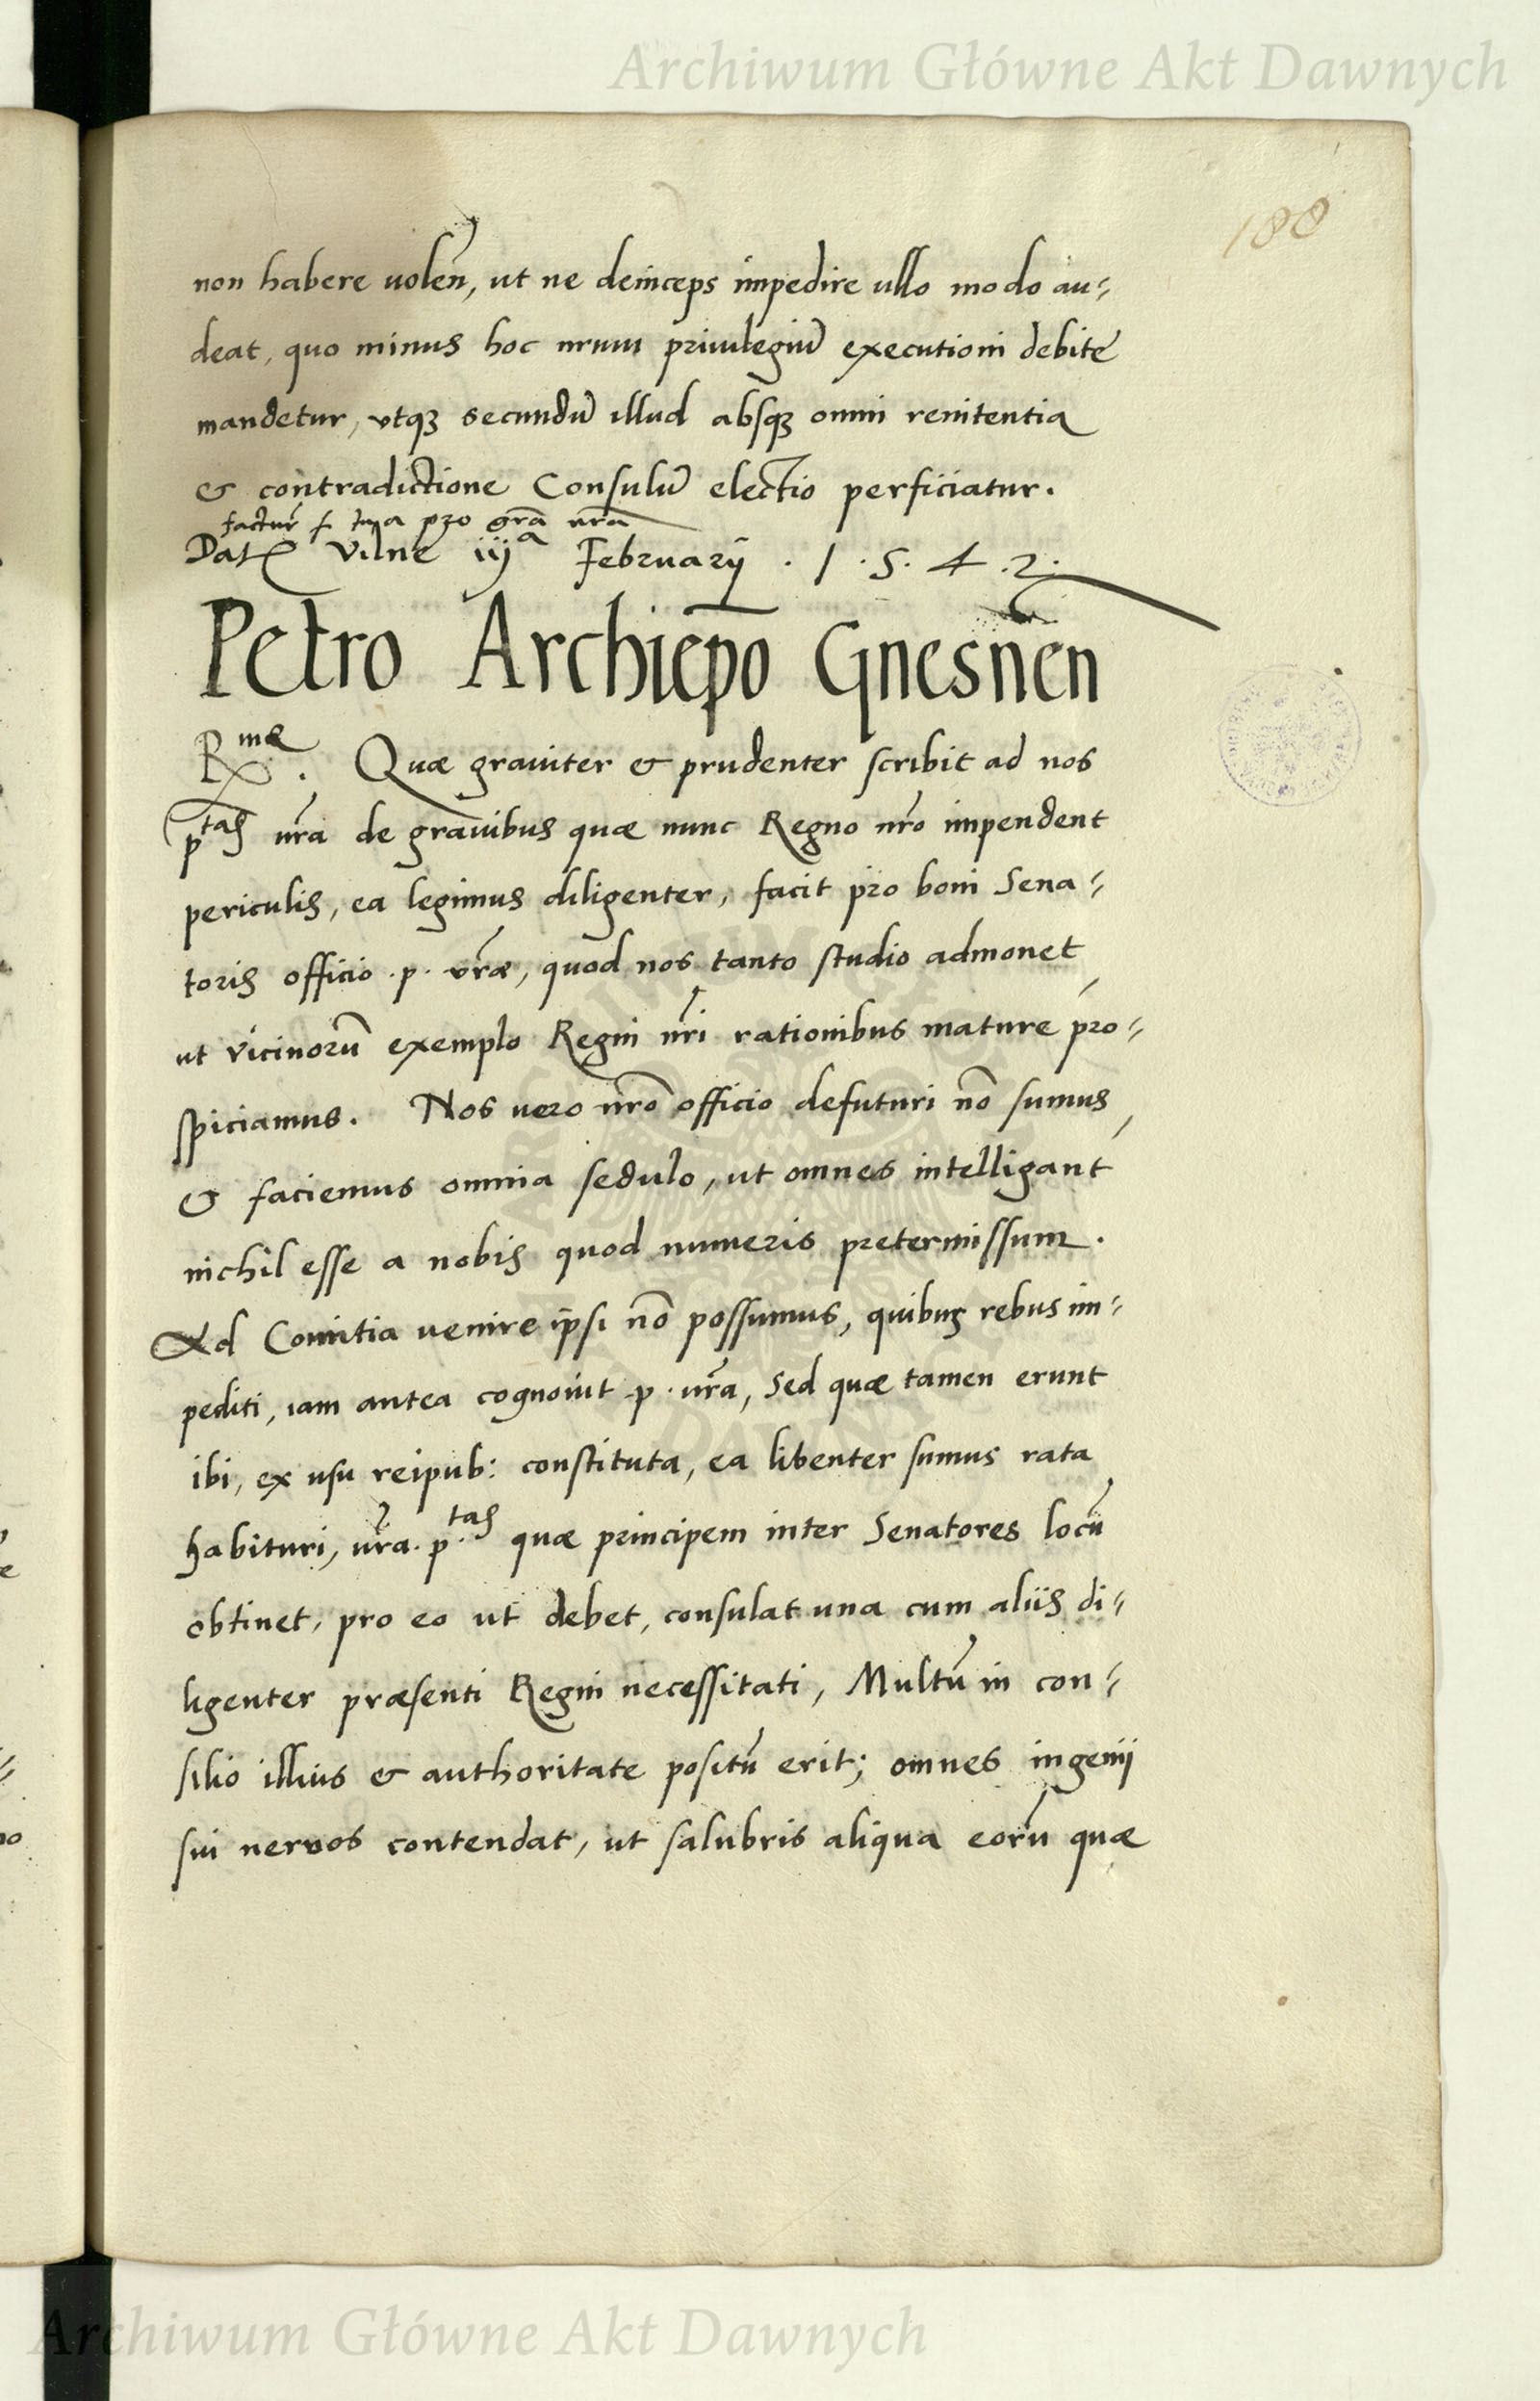 Archiwum Główne Akt Dawnych
188
non habere uolen̄, ut ne deinceps impedire ullo modo au-
deat, quo minus hoc nrum priuilegiū executioni debite
mandetur, vtqȝ secundū illud absqȝ omni renitentia
& contradictione Consulū electio perficiatur.
factur̄ f. tua pro gr̄a nr̄a
Dat Vilne iijᵃ Februarij . 1 . 5 . 4 . 2 .
Petro Archiep̄o Gnesnēn
Rᵐᵉ . Quæ grauiter & prudenter scribit ad nos
pᵗᵃˢ vr̄a de grauibus quæ nunc Regno nr̄o impendent
periculis, ea legimus diligenter, facit pro boni Sena-
toris officio .p. vr̄æ, quod nos tanto studio admonet
ut vicinorū exemplo Regni nr̄i rationibus mature pro-
spiciamus. Nos uero nr̄o officio defuturi nō sumus,
& faciemus omnia sedulo, ut omnes intelligant
nichil esse a nobis quod numeris pretermissum.
Ad Comitia venire ipsi nō possumus, quibus rebus im-
pediti, iam antea cognouit .p. vr̄a, sed quæ tamen erunt
ibi, ex usu reipub: constituta, ea libenter sumus rata
habituri, vr̄a. p.ᵗᵃˢ quæ principem inter Senatores locū
obtinet, pro eo ut debet, consulat una cum aliis di-
ligenter præsenti Regni necessitati, Multū in con-
silio illius & authoritate positū erit; omnes ingenij
sui neruos contendat, ut salubris aliqua eorū quæ
Archiwum Główne Akt Dawnych